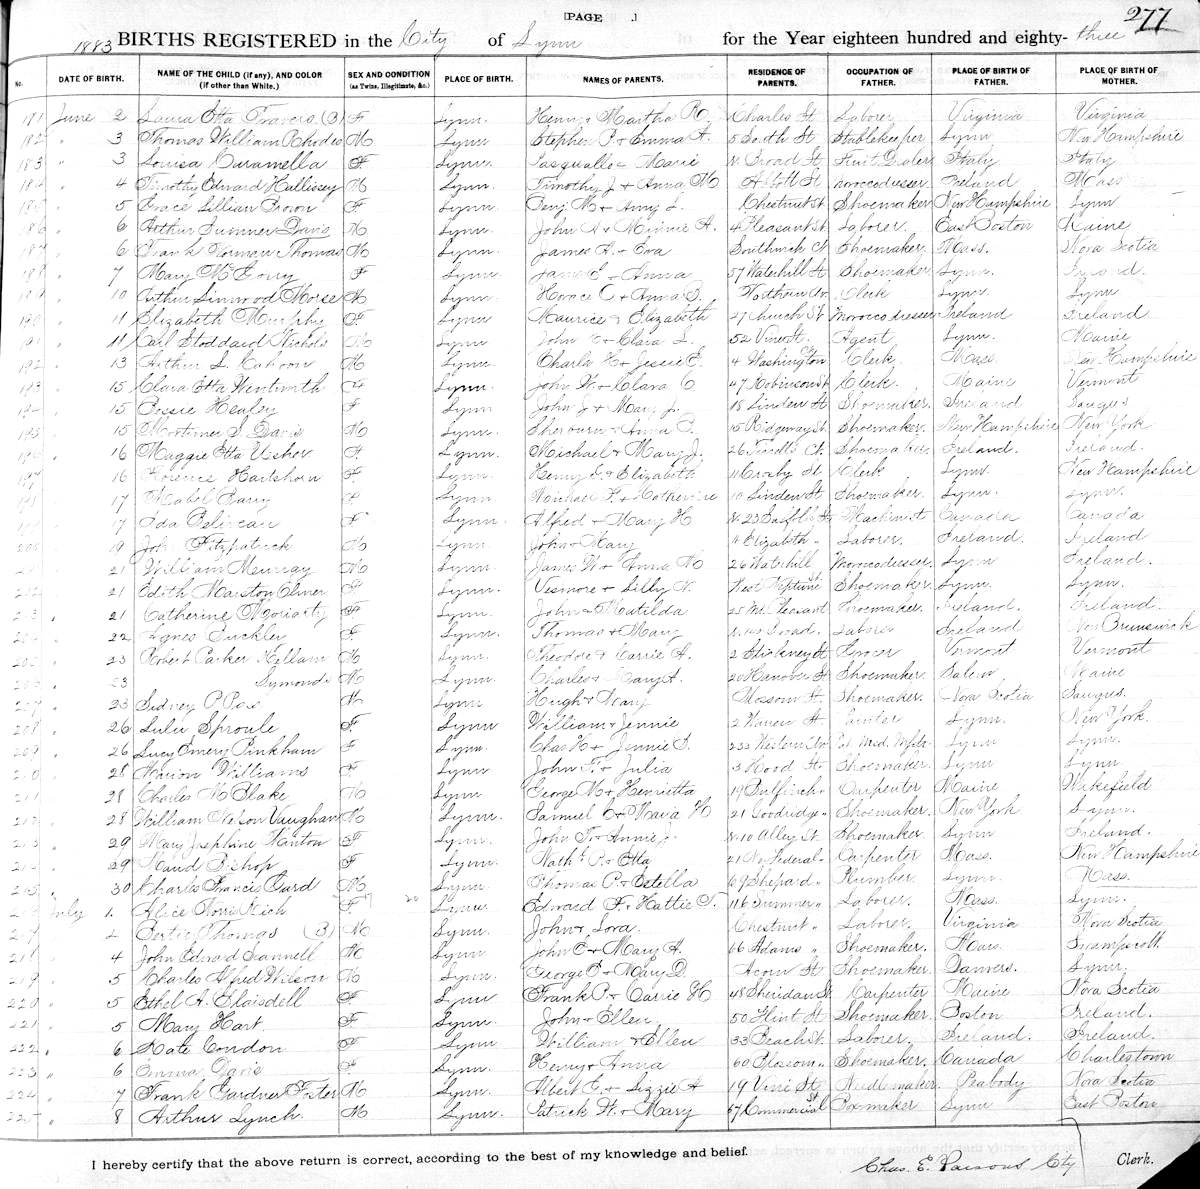 [PAGE .]
277
1883 BIRTHS REGISTERED in the City of Lynn for the Year eighteen hundred and eighty- three
No. DATE OF BIRTH. NAME OF THE CHILD (if any), AND COLOR (if other than White.) SEX AND CONDITION (as Twins, Illegitimate, &c.) PLACE OF BIRTH. NAMES OF PARENTS. RESIDENCE OF PARENTS. OCCUPATION OF FATHER. PLACE OF BIRTH OF FATHER. PLACE OF BIRTH OF MOTHER.
181 June 2 Laura Etta Travers (B) F Lynn. Henry & Martha R. Charles St Laborer Virginia Virginia
182 " 3 Thomas William Rhodes M Lynn Stephen P. & Emma A. 5 South St Stablekeeper Lynn New Hampshire
183 " 3 Louisa F. Lynn. Pasquallo & Marie Broad St Fruit Dealer Italy Italy
184 " 4 Timothy Edward Hallisey M Lynn. Timothy J. & Anna M Abbott St Moroccodresser Ireland Mass
185 " 5 Grace Lillian Brown F. Lynn. Benj. M. & Amy L. Chestnut St. Shoemaker New Hampshire Lynn
186 " 6 Arthur Sumner Davis M Lynn. John A. & Minnie A. 4 Pleasant St Laborer. East Boston Maine
187 " 6 Frank Norman Thomas M Lynn. James A. & Eva Southwick Ct Shoemaker Mass. Nova Scotia
188 " 7 Mary McGorry F Lynn. James E. & Anna 57 Waterhill St Shoemaker Lynn.
189 " 10 Arthur Linwood Morse M Lynn. Horace C. & Anna B. Northern Av. Clerk Lynn. Lynn
190 " 11 Elizabeth Murphy F. Lynn. Maurice & Elizabeth 27 Church St Moroccodresser Ireland Ireland
191 " 11 Carl Stoddard Nichols M Lynn. John & Clara L. 52 Vine St. Agent Lynn Maine
192 " 13 Arthur L. Cahoon M Lynn. Charles H. & Jessie E. 4 Washington Clerk Mass New Hampshire
193 " 15 Clara Etta Wentworth F Lynn. John W. & Clara C. 47 Robinson St Clerk. Maine Vermont
194 " 15 Bessie Healey F Lynn John J. & Mary J. 18 Linden St Shoemaker. Ireland Saugus
195 " 15 Mortimer S. Davis M Lynn. Sherburn & Anna 15 Ridgeway St. Shoemaker. New Hampshire New York
196 " 16 Maggie Etta Usher F. Lynn. Michael & Mary J. 26 Ct. Shoemaker. Ireland. Ireland.
197 " 16 Florence Hartshorn F Lynn. Henry G. & Elizabeth 11 Crosby St Clerk Lynn. New Hampshire
198 " 17 Mabel Barry F Lynn. Michael F. & Catherine 10 Linden St Shoemaker. Lynn. Lynn.
199 " 17 Ida F. Lynn. Alfred & Mary H Machinist Canada Canada
200 " 19 John Fitzpatrick M Lynn. John & Mary 4 Elizabeth " Laborer. Ireland. Ireland
201 " 21 William Murray M Lynn. James W. & Anna M 26 Waterhill Moroccodresser. Lynn Ireland.
202 " 21 Edith Marston F Lynn. & Lilly N. West Neptune St Shoemaker Lynn. Lynn.
203 " 21 Catherine Moriarty F Lynn. John & Matilda 25 Mt. Pleasant Shoemaker. Ireland. Ireland.
204 " 22 Agnes Buckley F Lynn. Thomas & Mary Broad. Laborer Ireland New Brunswick
205 " 23 Robert Parker Kellam M Lynn. Theodore & Carrie A. 2 Stickney St Grocer Vermont Vermont
206 " 23 Symonds M Lynn. Charles & Mary A. 20 Hanover St Shoemaker Salem Maine
207 " 23 Sidney P. M Lynn Hugh & Mary Blossom St. Shoemaker. Nova Scotia Saugus.
208 " 26 Lulu Sproule F. Lynn William & Jennie 2 Warren St. Lynn. New York.
209 " 26 Lucy Emery Pinkham F Lynn Chas H. & Jennie B. 233 Western Av Lynn Lynn.
210 " 28 Marion Williams F. Lynn. John F. & Julia 3 Hood St Shoemaker Lynn Lynn.
211 " 28 Charles M. Blake M Lynn. George W. & Henrietta 19 Bulfinch " Carpenter Maine Wakefield
212 " 28 William Nelson Vaughan M Lynn. Samuel C. & Maria H 21 Goodridge " Shoemaker. New York Lynn.
213 " 29 Mary Josephine Hanton F Lynn. John T. & Annie Alley St. Shoemaker Lynn Ireland.
214 " 29 Maud Bishop F Lynn. Nath'l P. & Etta 21 No. Federal " Carpenter Mass. New Hampshire
215 " 30 Charles Francis M Lynn. Thomas P. & Estella 69 Shepard " Plumber. Lynn. Mass.
216 July 1. Alice Norris Rich F Lynn. Edward F. & Hattie S. 116 Summer " Laborer. Mass. Lynn
217 " 2 Bertie Thomas (B) M Lynn. John & Lora. Chestnut " Laborer. Virginia Nova Scotia
218 " 4 John Edward Scannell M Lynn. John C. & Mary A. 66 Adams " Shoemaker. Mass. Swampscott
219 " 5 Charles Alfred Wilson M Lynn. George P. & Mary D. Acorn St Shoemaker. Danvers. Lynn.
220 " 5 Ethel A. Blaisdell F Lynn Frank P. & Carrie H 48 Sheridan St Carpenter Maine Nova Scotia
221 " 5 Mary Hart F. Lynn John & Ellen 50 Flint St Shoemaker. Boston Ireland.
222 " 6 Kate Condon F Lynn. William & Ellen 33 Beach St. Laborer. Ireland. Ireland.
223 " 6 Emma Davis F. Lynn. Henry & Anna 60 Blossom " Shoemaker. Canada Charlestown
224 " 7 Frank Gardner Foster M Lynn. Albert E. & Lizzie A 19 Vine St Needlemaker. Peabody Nova Scotia
225 " 8 Arthur Lynch. M Lynn. Patrick H. & Mary 67 Commercial St Boxmaker Lynn East Boston
I hereby certify that the above return is correct, according to the best of my knowledge and belief.
Chas. E. Parsons City Clerk.